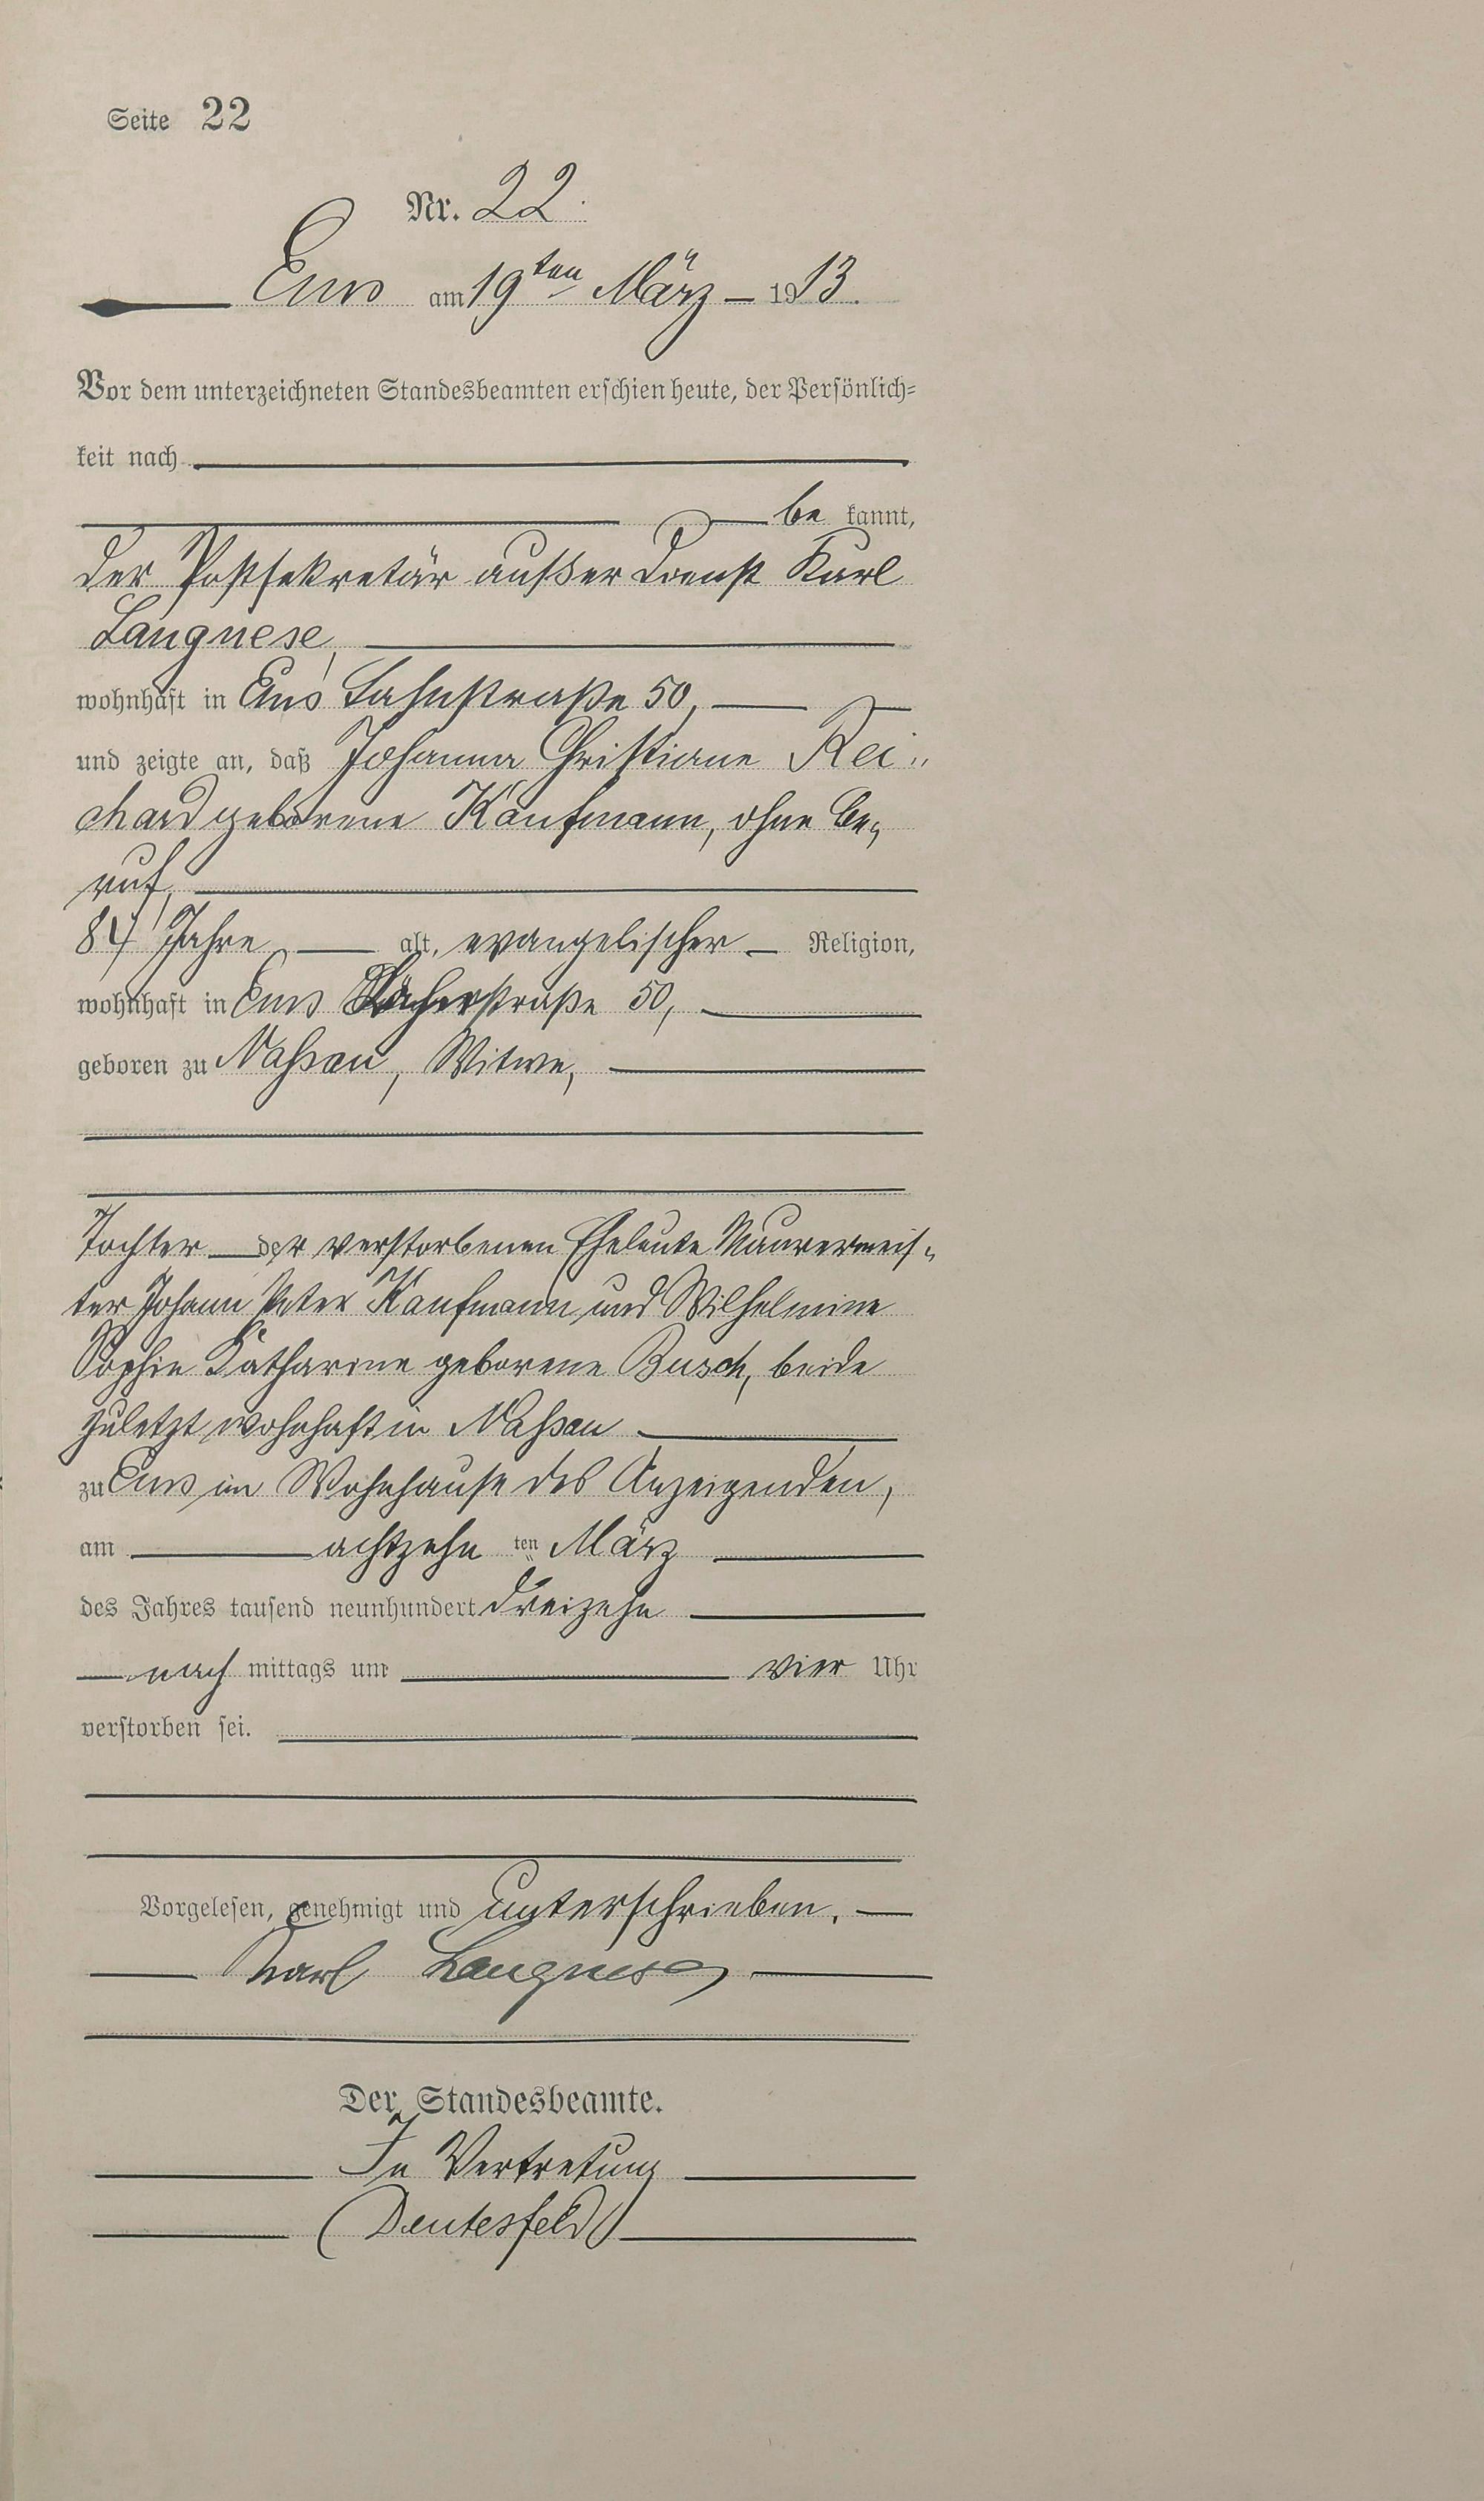 Seite 22
Nr. 22.
Ems am 19ten März 1913.
Vor dem unterzeichneten Standesbeamten erschien heute, der Persönlich=
keit nach
be kannt,
der Postsekretär außer Dienst Karl
Langnese,
wohnhaft in Ems Lahnstraße 50,
und zeigte an, daß Johanna Christiane Rei„
chard geborene Kaufmann, ohne Be„
ruf,
84 Jahre alt, evangelischer Religion,
wohnhaft in Ems straße 50,
geboren zu Nassau, Witwe,
Tochter der verstorbenen Eheleute Maurermeis„
ter Johann Peter Kaufmann und Wilhelmine
Sophie Katharine geborene Busch, beide
zuletzt wohnhaft in Nassau
zu Ems im Wohnhause des Anzeigenden,
am achtzehn ten März
des Jahres tausend neunhundert dreizehn
nach mittags um vier Uhr
verstorben sei.
Vorgelesen, genehmigt und unterschrieben.
Karl Langnese
Der Standesbeamte.
In Vertretung
(Deutesfeld)